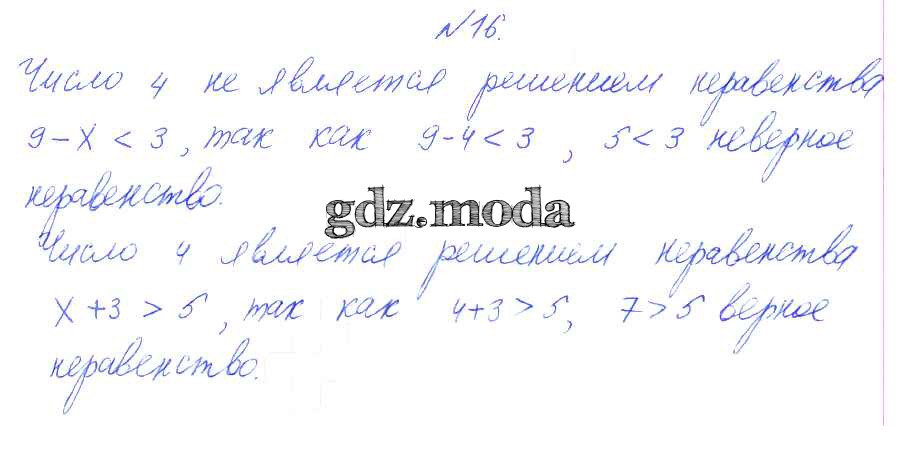 №16.
Число 4 не является решением неравенства
9-x < 3, так как 9-4<3, 5<3 неверное
неравенство.
gdz.moda
Число 4 является решением неравенства
x+3 > 5, так как 4+3>5, 7>5 верное
неравенство.